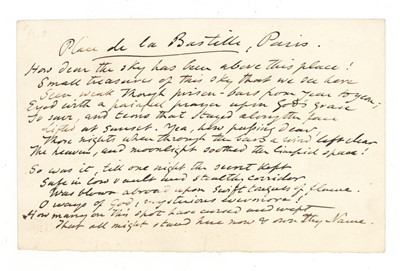 Place de la Bastille, Paris.
How dear the sky has been above this place!
Small treasures of this sky that we see here
Seen weak through prison-bars from year to year;
Eyed with a painful prayer upon God's grace
To save, and tears that stayed along the face
Lifted at sunset. Yea, how passing dear,
Those nights when through the bars a wind left clear
The heaven, and moonlight soothed the limpid space!
So was it, till one night the secret kept
Safe in low vault and stealthy corridor
Was blown abroad upon swift tongues of flame.
O ways of God, mysterious evermore!
How many on this spot have cursed and wept
That all might stand here now & own Thy Name.